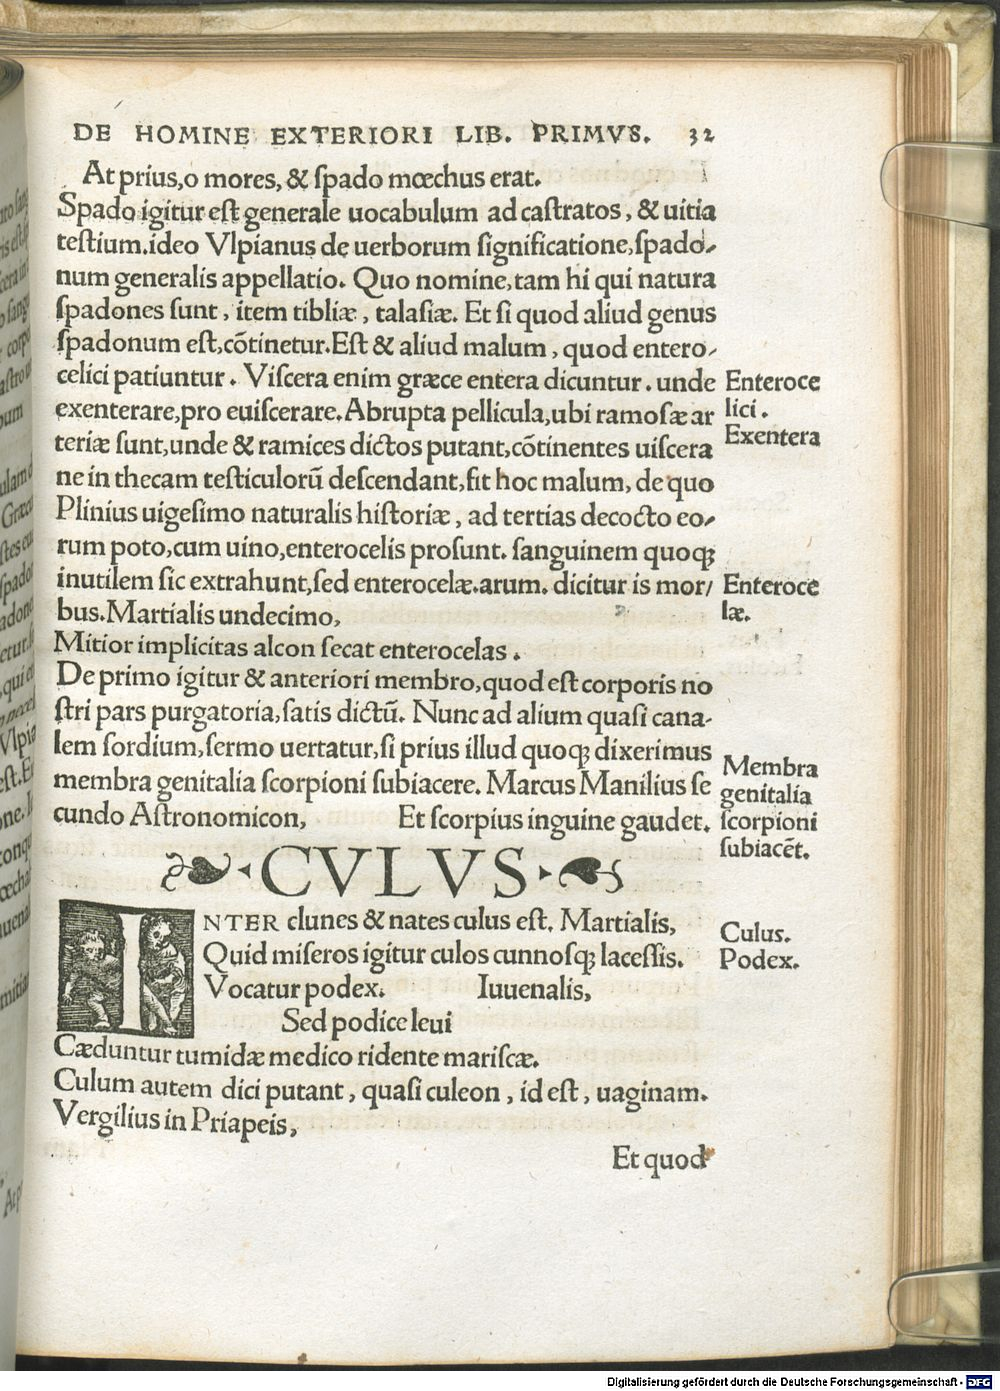 DE HOMINE EXTERIORI LIB. PRIMVS. 32
At prius,o mores, & ſpado mœchus erat.
Spado igitur eſt generale uocabulum ad caſtratos, & uitia
teſtium.ideo Vlpianus de uerborum ſignificatione,ſpado-
num generalis appellatio. Quo nomine,tam hi qui natura
ſpadones ſunt, item tibliæ, talaſiæ. Et ſi quod aliud genus
ſpadonum eſt,cõtinetur.Eſt & aliud malum, quod entero-
celici patiuntur. Viſcera enim græce entera dicuntur. unde
exenterare,pro euiſcerare. Abrupta pellicula,ubi ramoſæ ar
teriæ ſunt,unde & ramices dictos putant,cõtinentes uiſcera
ne in thecam teſticulorũ deſcendant,fit hoc malum, de quo
Plinius uigeſimo naturalis hiſtoriæ, ad tertias decocto eo-
rum poto,cum uino,enterocelis proſunt. ſanguinem quoqꝫ
inutilem ſic extrahunt,ſed enterocelæ.arum. dicitur is mor/
bus.Martialis undecimo,
Mitior implicitas alcon ſecat enterocelas.
De primo igitur & anteriori membro,quod eſt corporis no
ſtri pars purgatoria,ſatis dictũ. Nunc ad alium quaſi cana-
lem ſordium,ſermo uertatur,ſi prius illud quoqꝫ dixerimus
membra genitalia ſcorpioni ſubiacere. Marcus Manilius ſe
cundo Aſtronomicon, Et ſcorpius inguine gaudet.
CVLVS
INTER clunes & nates culus eſt. Martialis,
Quid miſeros igitur culos cunnoſqꝫ laceſſis.
Vocatur podex. Iuuenalis,
Sed podice leui
Cæduntur tumidæ medico ridente mariſcæ.
Culum autem dici putant, quaſi culeon, id eſt, uaginam.
Vergilius in Priapeis,
Et quod
Enteroce
lici.
Exentera
Enteroce
læ.
Membra
genitalia
ſcorpioni
ſubiacẽt.
Culus.
Podex.
Digitalisierung gefördert durch die Deutsche Forschungsgemeinschaft - DFG